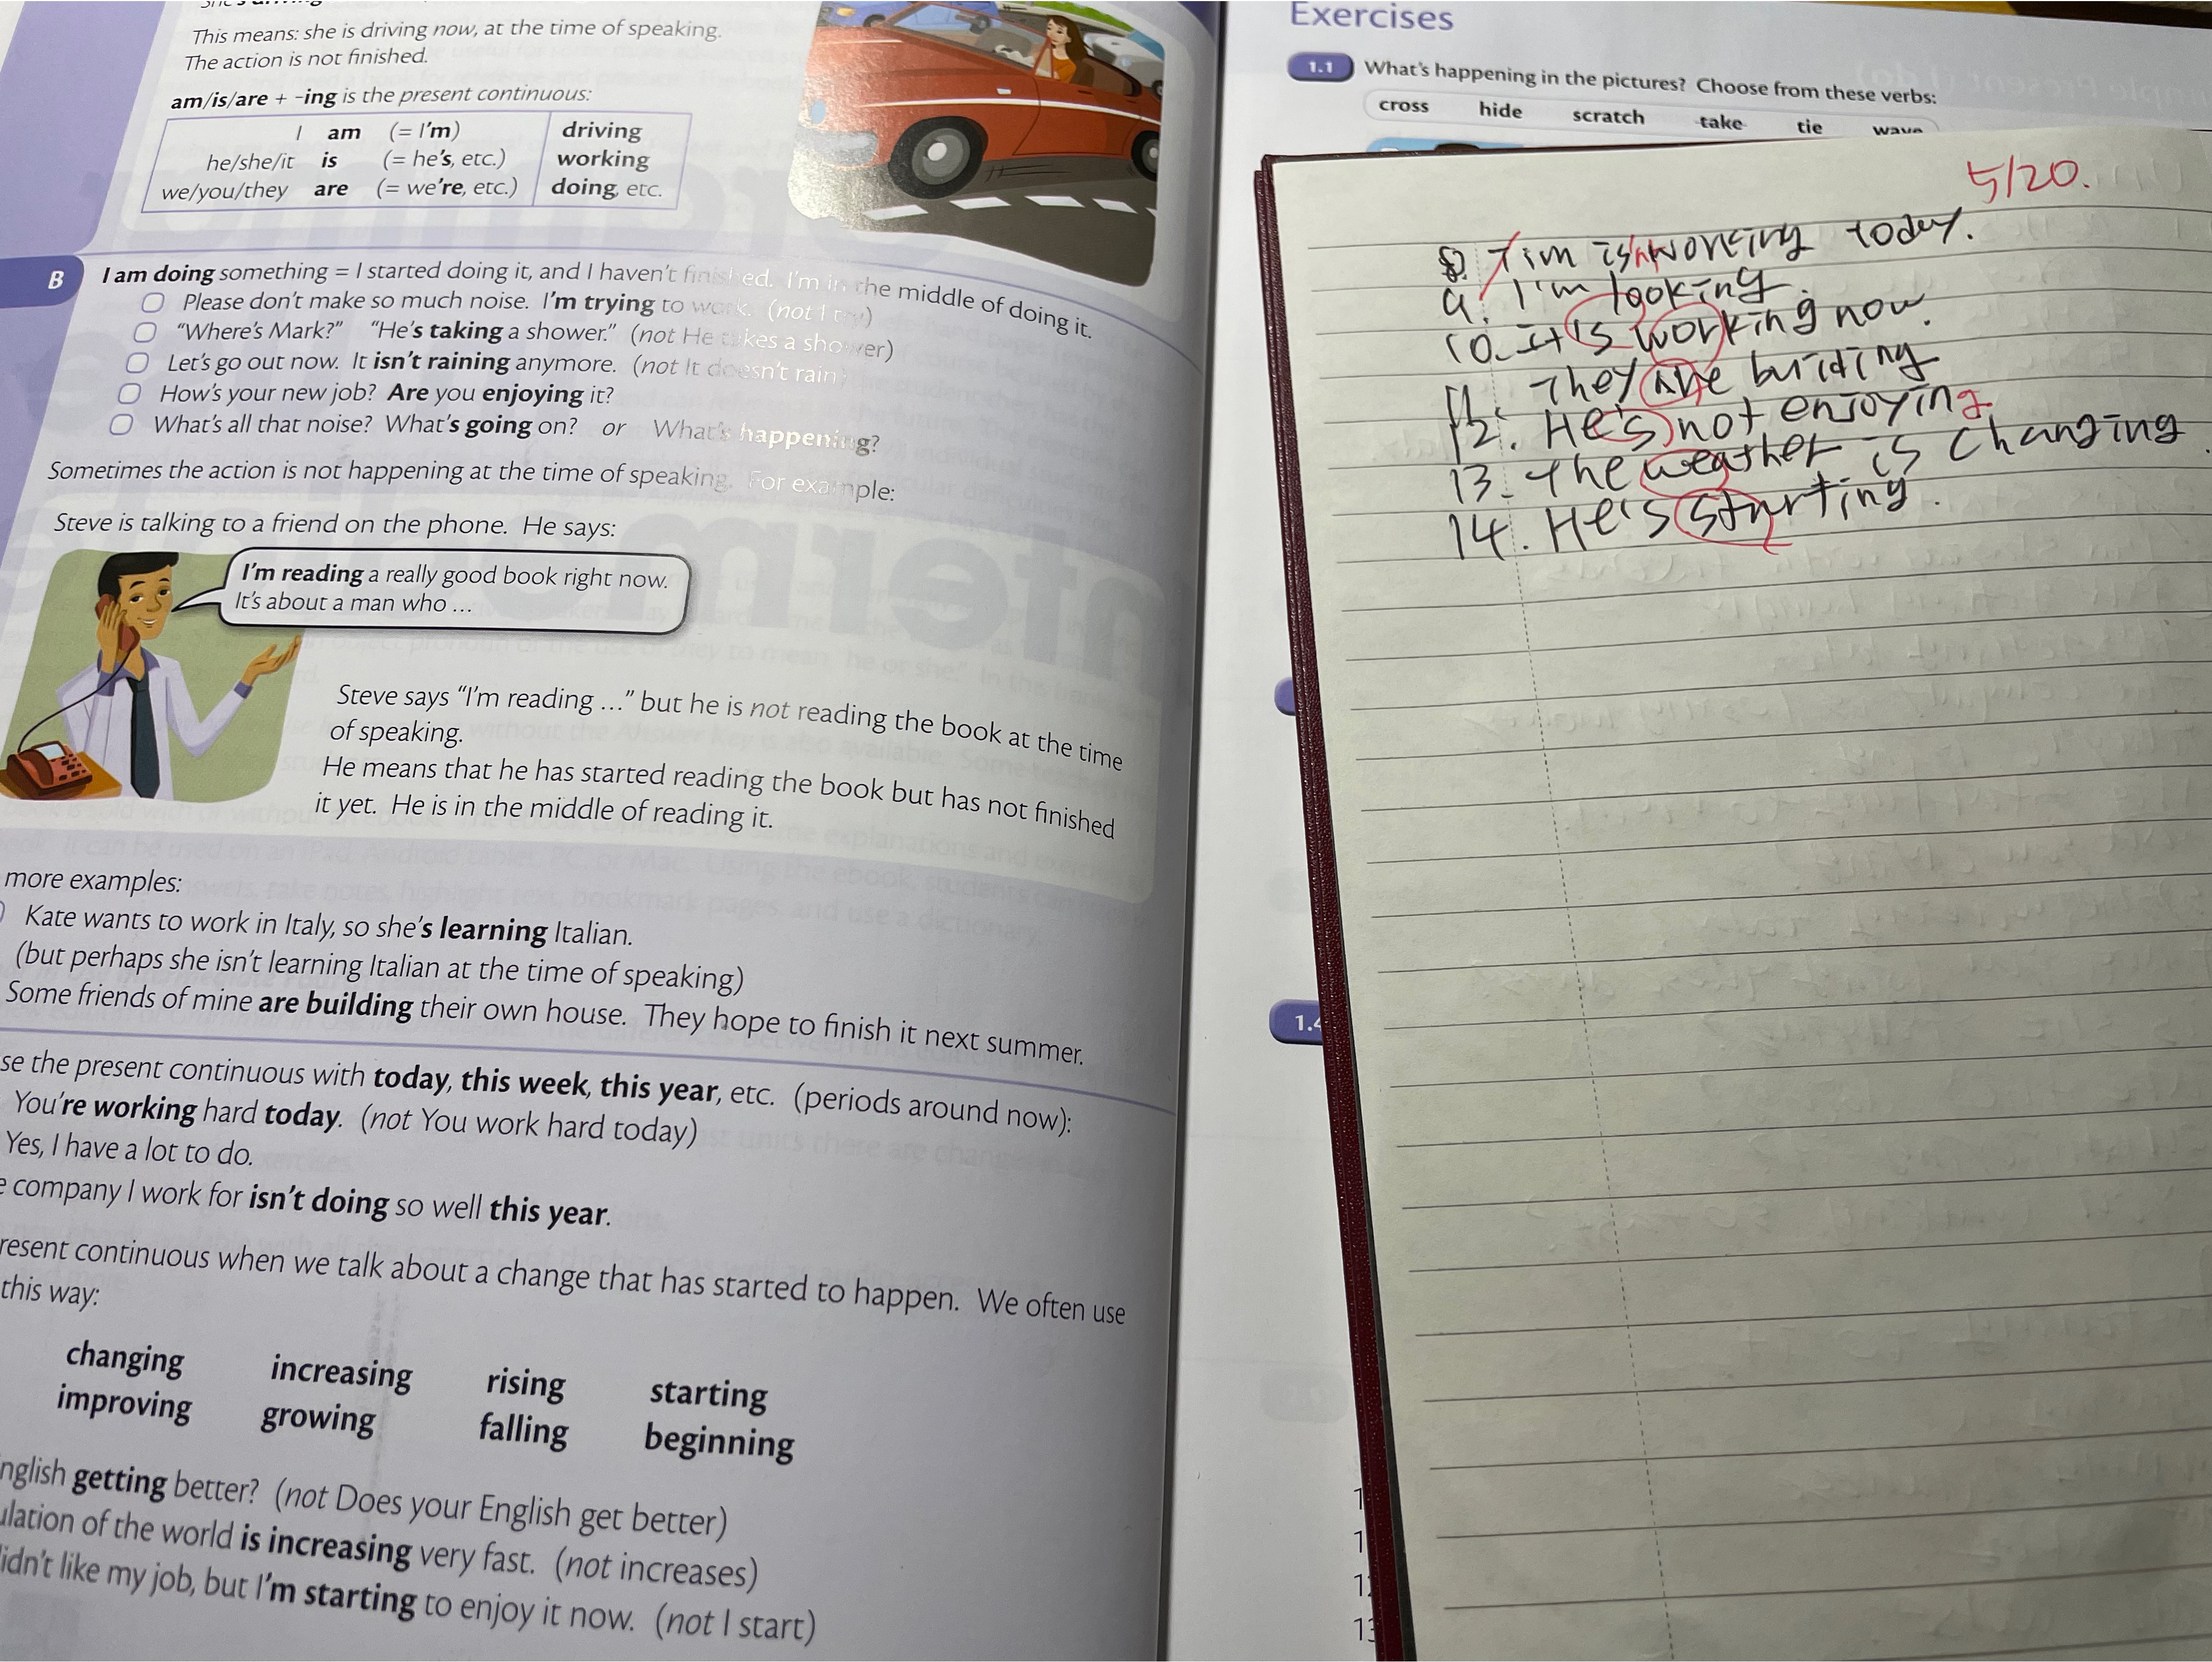 This means: she is driving now, at the time of speaking.
The action is not finished.
am/is/are + -ing is the present continuous:
I am (= I'm) driving
he/she/it is (= he's, etc.) working
we/you/they are (= we're, etc.) doing, etc.
B I am doing something = I started doing it, and I haven't finished. I'm in the middle of doing it.
Please don't make so much noise. I'm trying to work. (not I try)
"Where's Mark?" "He's taking a shower." (not He takes a shower)
Let's go out now. It isn't raining anymore. (not It doesn't rain)
How's your new job? Are you enjoying it?
What's all that noise? What's going on? or What's happening?
Sometimes the action is not happening at the time of speaking. For example:
Steve is talking to a friend on the phone. He says:
I'm reading a really good book right now.
It's about a man who ...
Steve says "I'm reading ..." but he is not reading the book at the time
of speaking.
He means that he has started reading the book but has not finished
it yet. He is in the middle of reading it.
more examples:
Kate wants to work in Italy, so she's learning Italian.
(but perhaps she isn't learning Italian at the time of speaking)
Some friends of mine are building their own house. They hope to finish it next summer.
se the present continuous with today, this week, this year, etc. (periods around now):
You're working hard today. (not You work hard today)
Yes, I have a lot to do.
e company I work for isn't doing so well this year.
resent continuous when we talk about a change that has started to happen. We often use
this way:
changing increasing rising starting
improving growing falling beginning
nglish getting better? (not Does your English get better)
ulation of the world is increasing very fast. (not increases)
idn't like my job, but I'm starting to enjoy it now. (not I start)
Exercises
1.1 What's happening in the pictures? Choose from these verbs:
cross hide scratch take tie wave
5/20.
8. Tim isn't working today.
9. I'm looking.
10. It's working now.
11. They are building
12. He's not enjoying.
13. The weather is changing.
14. He's starting.
1.4
1
1
12
13